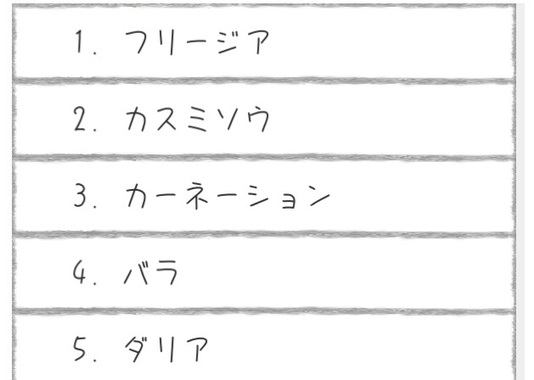 1. フリージア
2. カスミソウ
3. カーネーション
4. バラ
5. ダリア